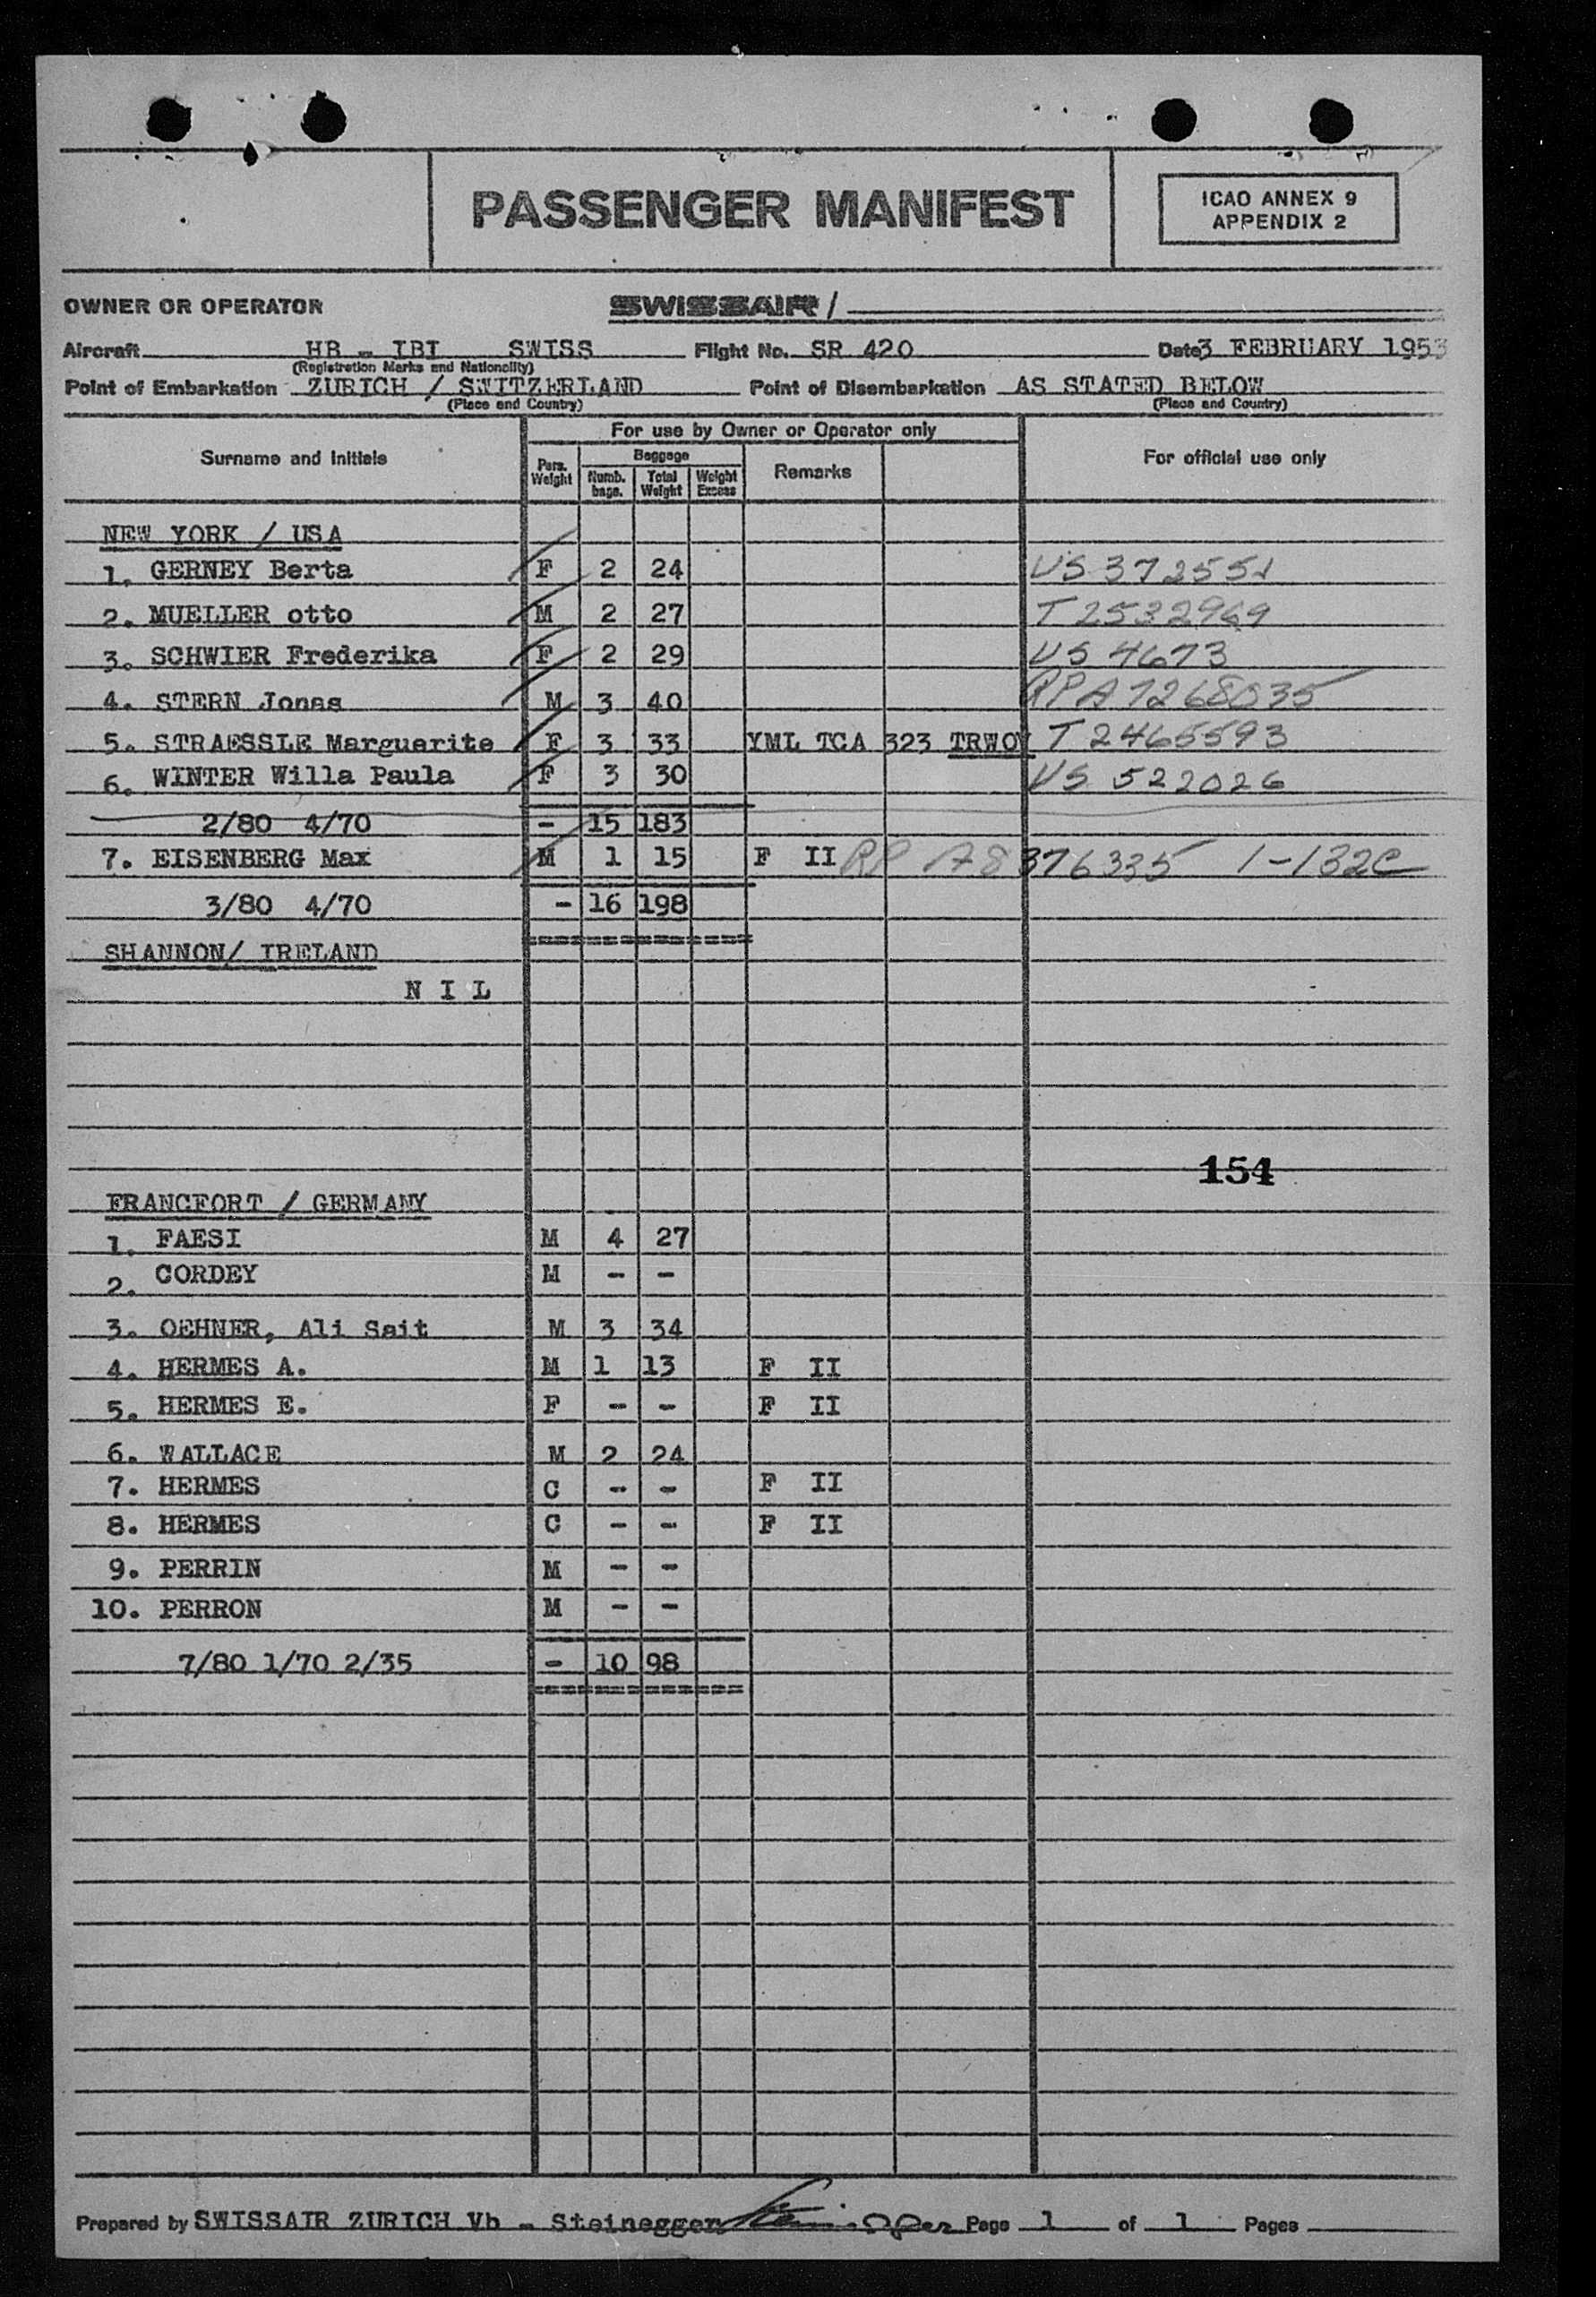 PASSENGER MANIFEST
ICAO ANNEX 9
APPENDIX 2
OWNER OR OPERATOR SWISSAIR /
Aircraft HB - IBI SWISS Flight No. SR 420 Date 3 FEBRUARY 1953
(Registration Marks and Nationality)
Point of Embarkation ZURICH / SWITZERLAND Point of Disembarkation AS STATED BELOW
(Place and Country) (Place and Country)
For use by Owner or Operator only
Surname and Initials Pers. Weight Baggage Numb. bags. Total Weight Weight Excess Remarks For official use only
NEW YORK / USA
1. GERNEY Berta F 2 24
2. MUELLER otto M 2 27 T 2532969
3. SCHWIER Frederika F 2 29 US 4673
4. STERN Jonas M 3 40 RP A7268035
5. STRAESSLE Marguerite F 3 33 YML TCA 323 TRWOY T 2465593
6. WINTER Willa Paula F 3 30 US 522026
2/80 4/70 - 15 183
7. EISENBERG Max M 1 15 F II RP A8376335 1-132C
3/80 4/70 - 16 198
==================
SHANNON/ IRELAND
N I L
154
FRANCFORT / GERMANY
1. FAESI M 4 27
2. CORDEY M - -
3. OEHNER, Ali Sait M 3 34
4. HERMES A. M 1 13 F II
5. HERMES E. F - - F II
6. WALLACE M 2 24
7. HERMES C - - F II
8. HERMES C - - F II
9. PERRIN M - -
10. PERRON M - -
7/80 1/70 2/35 - 10 98
==================
Prepared by SWISSAIR ZURICH Vb - Steinegger Page 1 of 1 Pages